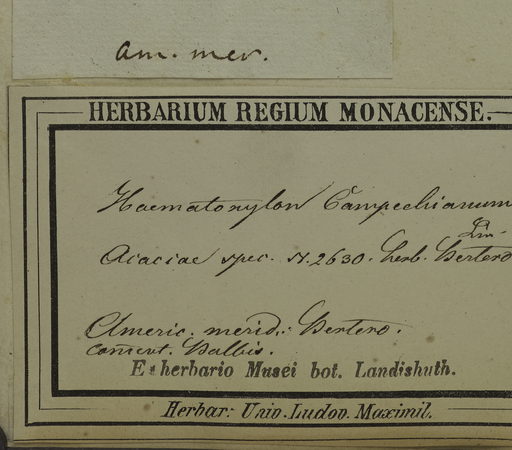 am. mer.
HERBARIUM REGIUM MONACENSE.
Haematoxylon Campechianum
Lin.
Acaciae spec. N. 2630. herb. Bertero
Americ. merid.: Bertero.
comunt. Balbis.
E herbario Musei bot. Landishuth.
Herbar: Univ. Ludov. Maximil.